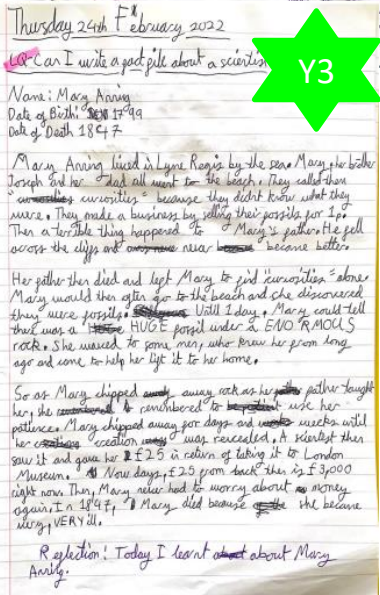 Thursday 24th February 2022
LQ-Can I write a fact file about a scientist
Y3
Name: Mary Anning
Date of Birth: 1799
Date of Death 1847
Mary Anning lived in Lyme Regis by the sea. Mary, her brother
Joseph and her dad all went to the beach. They called them
"curiosities" because they didnt know what they
were. They made a business by selling their fossils for 1p.
Then a terrible thing happened to Mary's father. He fell
across the cliffs and never became better.
Her father then died and left Mary to find "curiosities" alone.
Mary would then often go to the beach and she discovered
they were fossils. Until 1 day. Mary could tell
there was a HUGE fossil under a ENORMOUS
rock. She waved to some men, who knew her from long
ago and came to help her lift it to her home.
So as Mary chipped away rock as her father taught
her, she remembered to use her
patience. Mary chipped away for days and weeks until
her creation was revealed. A scientist then
saw it and gave her £25 in return of taking it to London
Museum. Now days, £25 from back then is £3,000
right now. Then, Mary never had to worry about money
again. In 1847, Mary died because she became
very, VERY ill.
Reflection! Today I learnt about Mary
Anning.